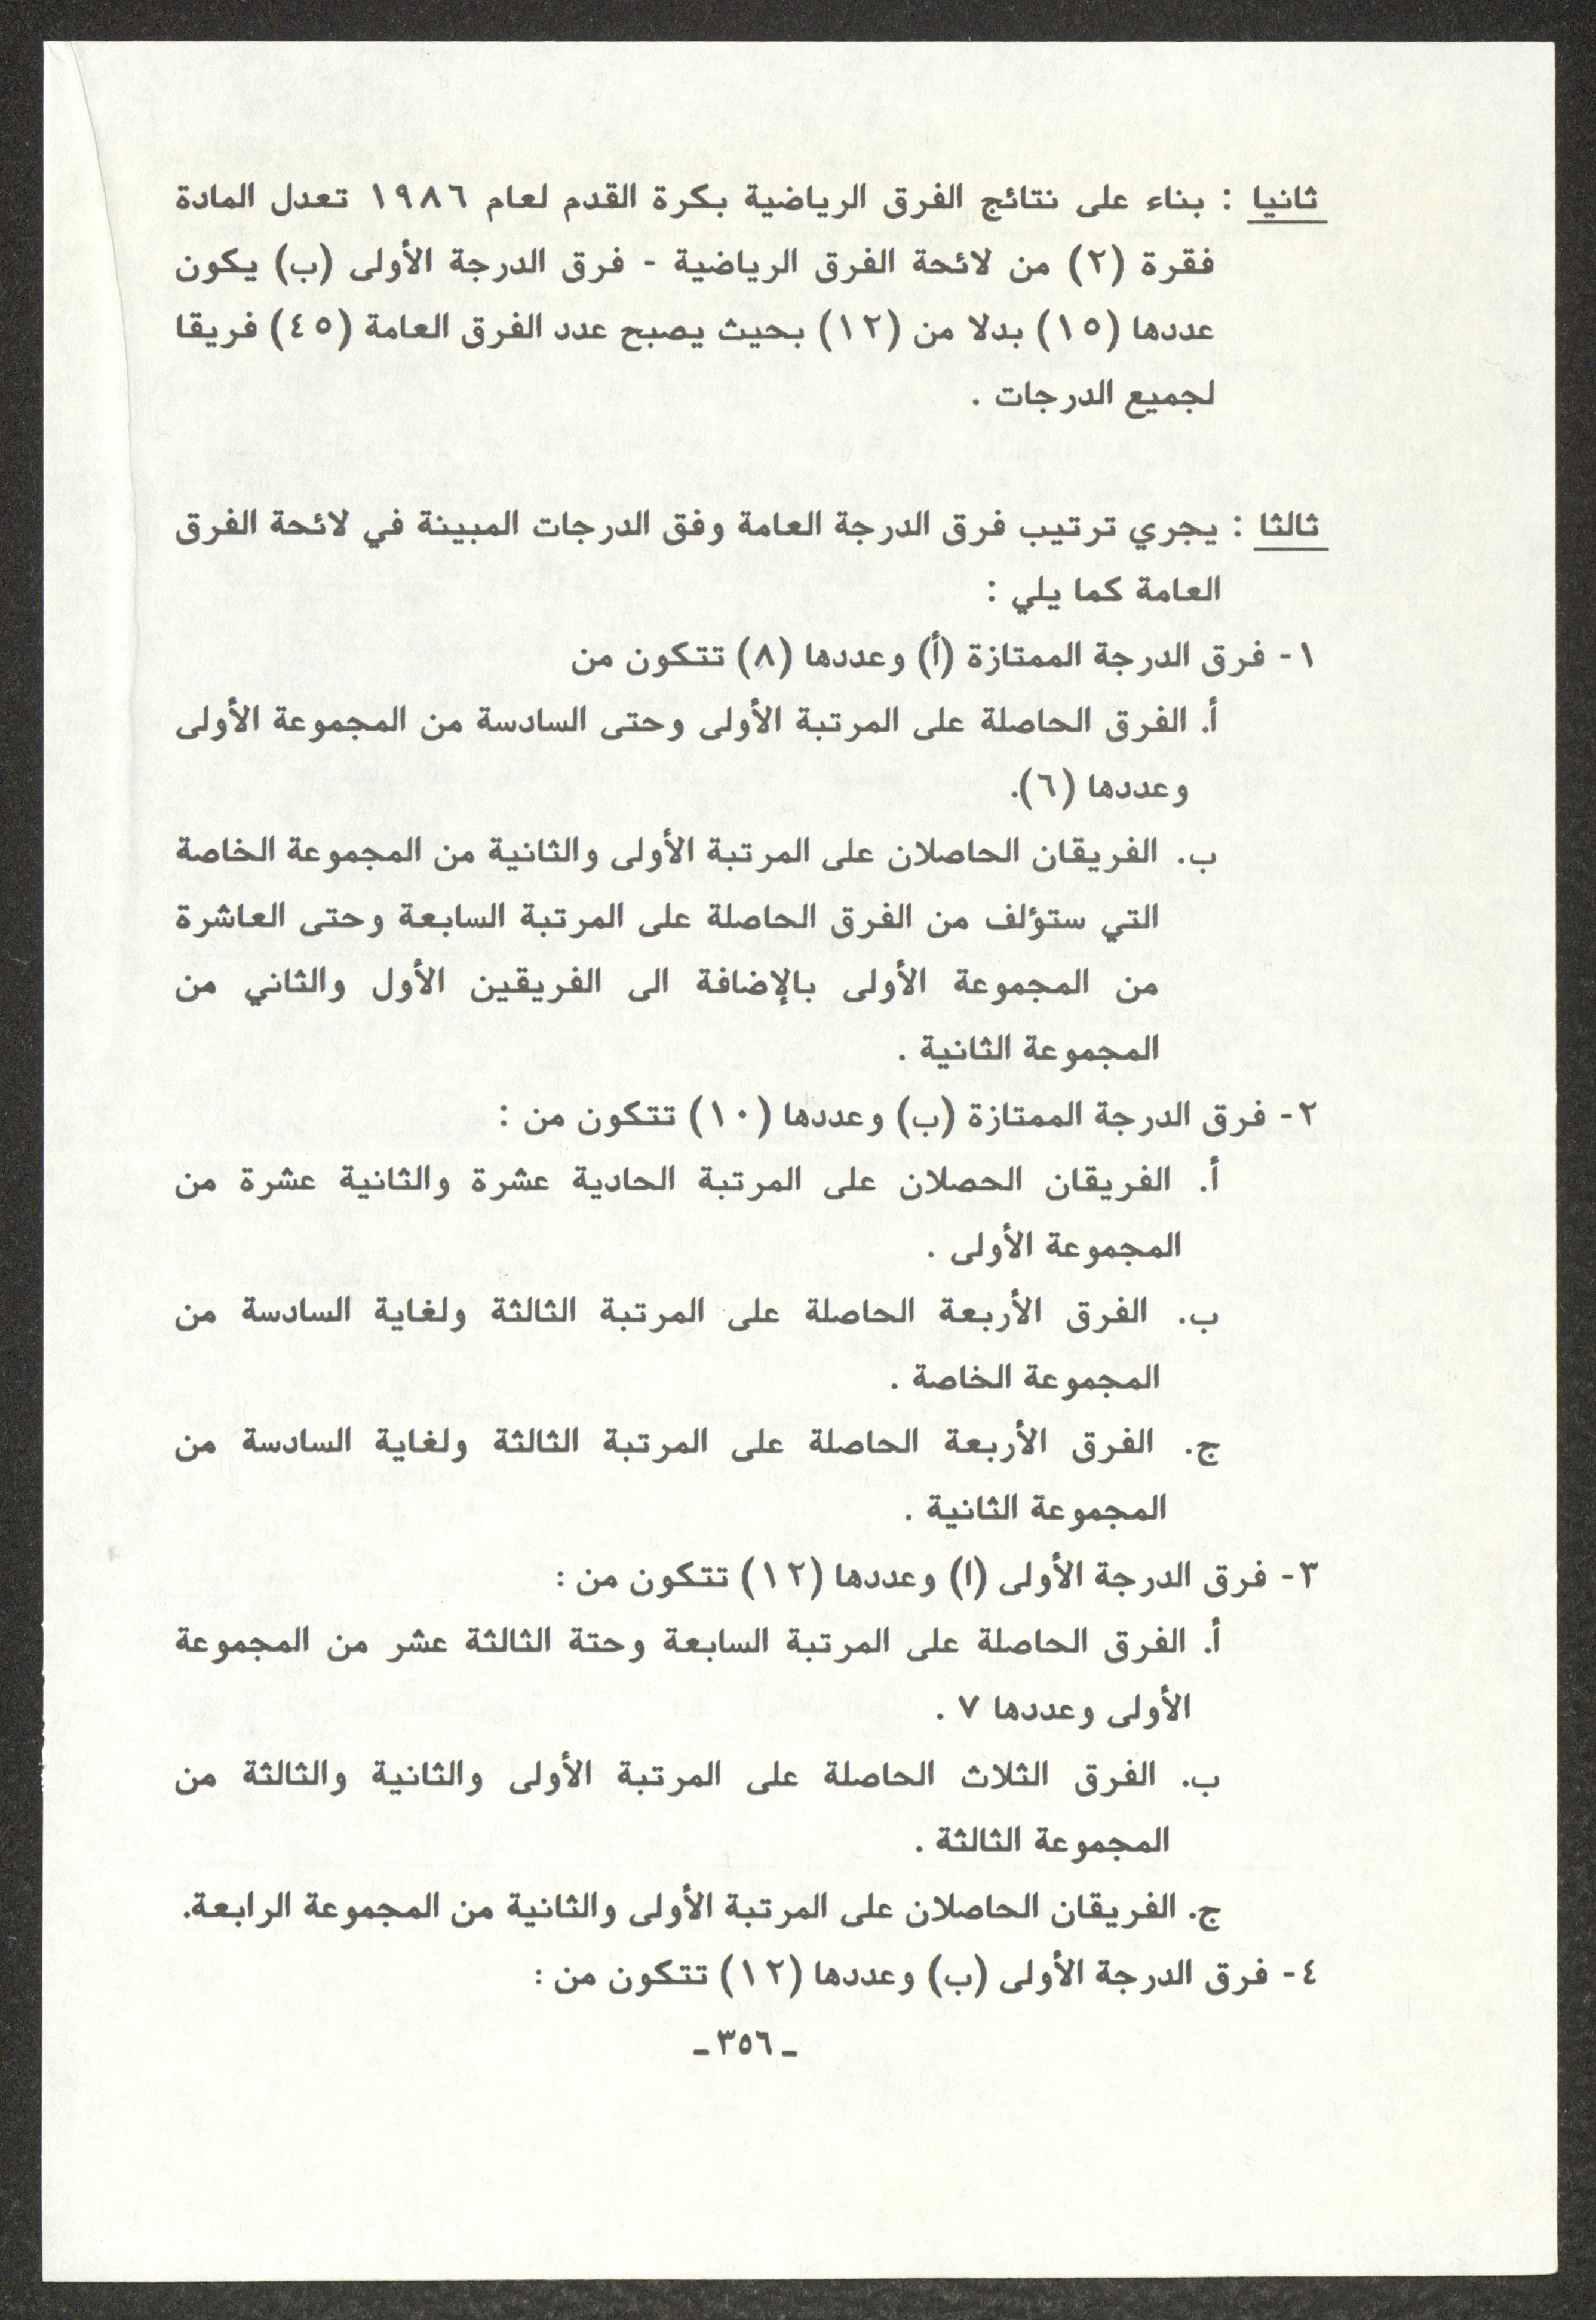 ثانيا : بناء على نتائج الفرق الرياضية بكرة القدم لعام ١٩٨٦ تعدل المادة
فقرة (٢) من لائحة الفرق الرياضية - فرق الدرجة الأولى (ب) يكون
عددها (١٥) بدلا من (١٢) بحيث يصبح عدد الفرق العامة (٤٥) فريقا
لجميع الدرجات .
ثالثا : يجري ترتيب فرق الدرجة العامة وفق الدرجات المبينة في لائحة الفرق
العامة كما يلي :
١- فرق الدرجة الممتازة (أ) وعددها (٨) تتكون من
أ. الفرق الحاصلة على المرتبة الأولى وحتى السادسة من المجموعة الأولى
وعددها (٦).
ب. الفريقان الحاصلان على المرتبة الأولى والثانية من المجموعة الخاصة
التي ستؤلف من الفرق الحاصلة على المرتبة السابعة وحتى العاشرة
من المجموعة الأولى بالإضافة الى الفريقين الأول والثاني من
المجموعة الثانية .
٢- فرق الدرجة الممتازة (ب) وعددها (١٠) تتكون من :
أ. الفريقان الحصلان على المرتبة الحادية عشرة والثانية عشرة من
المجموعة الأولى .
ب. الفرق الأربعة الحاصلة على المرتبة الثالثة ولغاية السادسة من
المجموعة الخاصة .
ج. الفرق الأربعة الحاصلة على المرتبة الثالثة ولغاية السادسة من
المجموعة الثانية .
٣- فرق الدرجة الأولى (ا) وعددها (١٢) تتكون من :
أ. الفرق الحاصلة على المرتبة السابعة وحتة الثالثة عشر من المجموعة
الأولى وعددها ٧ .
ب. الفرق الثلاث الحاصلة على المرتبة الأولى والثانية والثالثة من
المجموعة الثالثة .
ج. الفريقان الحاصلان على المرتبة الأولى والثانية من المجموعة الرابعة.
٤- فرق الدرجة الأولى (ب) وعددها (١٢) تتكون من :
ـ ٣٥٦ ـ